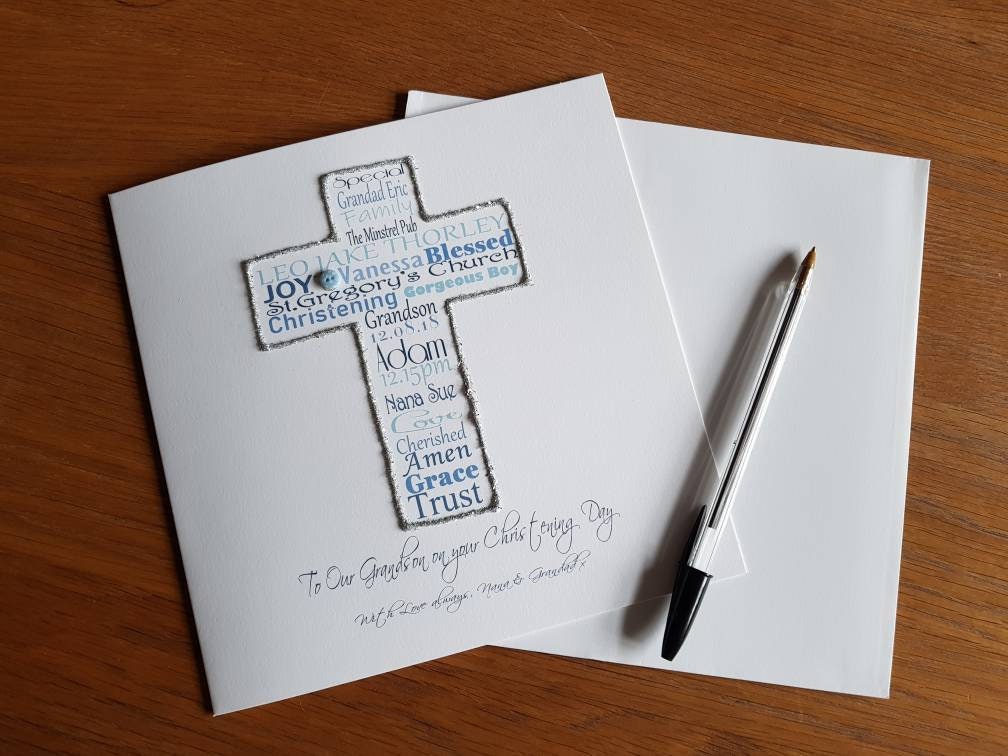 Special
Grandad Eric
Family
The Minstrel Pub
LEO JAKE THORLEY
JOY Vanessa Blessed
St.Gregory's Church
Christening Gorgeous Boy
Grandson
12.08.18
Adam
12.15pm
Nana Sue
Love
Cherished
Amen
Grace
Trust
To Our Grandson on your Christening Day
With Love always, Nana & Grandad x